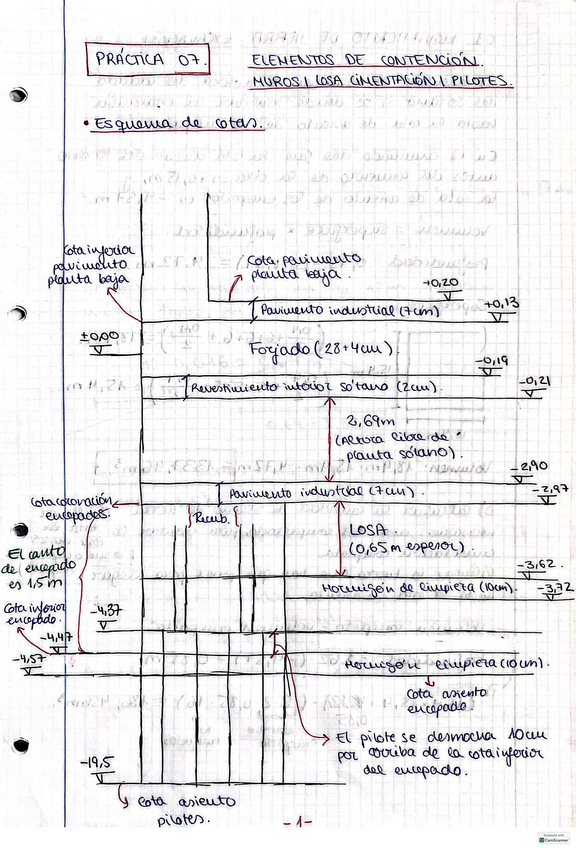 PRÁCTICA 07.
ELEMENTOS DE CONTENCIÓN.
MUROS | LOSA CIMENTACIÓN | PILOTES.
• Esquema de cotas.
Cota inferior
pavimento
planta baja
Cota pavimento
planta baja.
+0,20
Pavimento industrial (7cm)
+0,13
±0,00
Forjado (28+4cm).
-0,19
Revestimiento interior sótano (2cm).
-0,21
2,69m
(Altura libre de
planta sótano).
-2,90
Pavimento industrial (7cm).
-2,97
Cota coronación
encepados.
Recub.
LOSA.
(0,65m espesor).
El canto
del encepado
es 1,5 m
-3,62.
Hormigón de limpieza (10cm).
-3,72
Cota inferior
encepado.
-4,37
-4,47
-4,57
Hormigón limpieza (10cm).
Cota asiento
encepado.
El pilote se desmocha 10cm
por arriba de la cota inferior
del encepado.
-19,5
Cota asiento
pilotes.
-1-
Scanned with
CamScanner